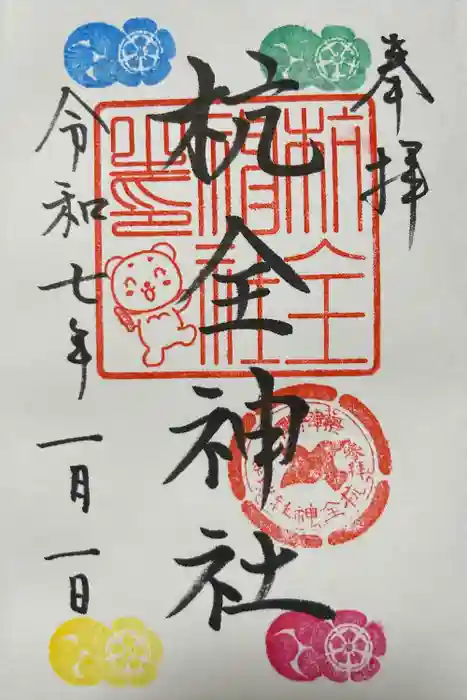 奉拝
杭全神社
令和七年一月一日
杭全神社之印